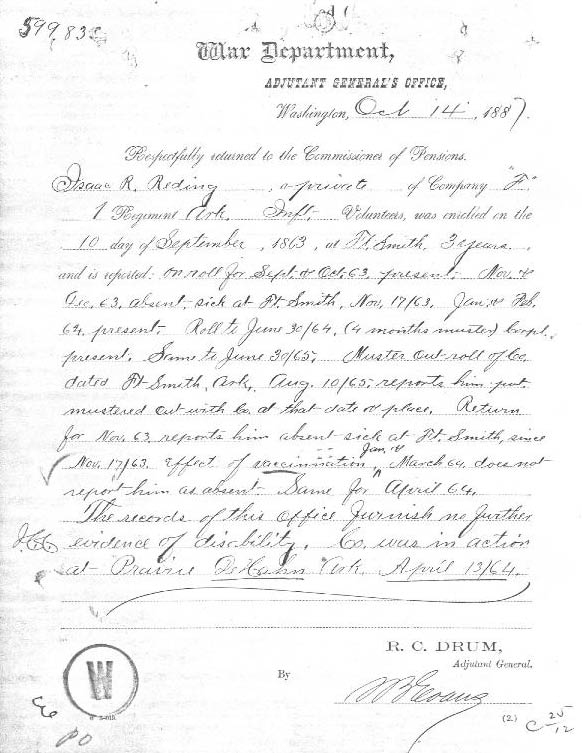 599,835
War Department,
ADJUTANT GENERAL'S OFFICE,
Washington, Oct 14, 1887.
Respectfully returned to the Commissioner of Pensions.
Isaac R. Reding, a private of Company "F"
1 Regiment Ark. Inft. Volunteers, was enrolled on the
10 day of September, 1863, at Ft. Smith, 3 years,
and is reported: on roll for Sept. & Oct. 63, present. Nov. &
Dec. 63, absent, sick at Ft. Smith, Nov. 17/63. Jan. & Feb.
64, present. Roll to June 30/64, (4 months muster) Corpl.
present. Same to June 30/65. Muster out roll of Co.
dated Ft Smith, Ark., Aug. 10/65, reports him
mustered out with Co. at that date & place. Return
for Nov. 63, reports him absent sick at Ft. Smith, since
Nov. 17/63. Effect of vaccination, Jan. & March 64, does not
report him as absent. Same for April 64.
The records of this office furnish no further
evidence of disability. Co. was in action
at Prairie Ark. April 13/64.
R. C. DRUM,
Adjutant General.
By
W
(2)
C 25/12